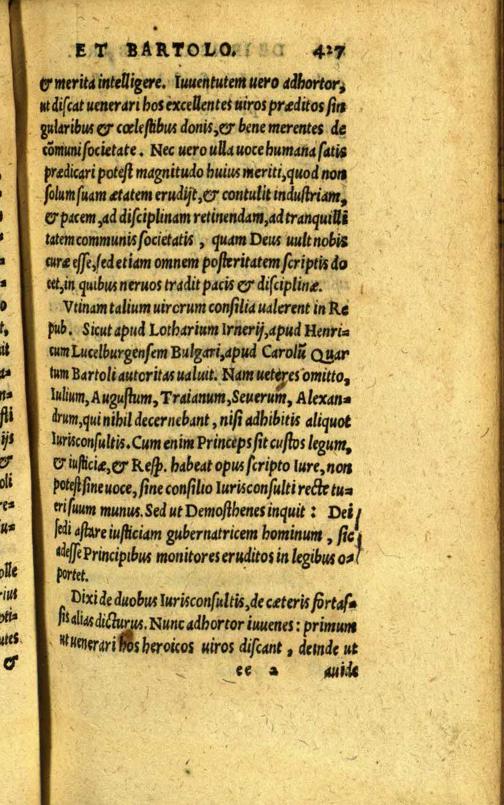 ET BARTOLO. 427
& merita intelligere. Iuuentutem uero adhortor,
ut discat uenerari hos excellentes uiros præditos sin
gularibus & cœlestibus donis, & bene merentes de
cõmuni societate. Nec uero ulla uoce humana satis
prædicari potest magnitudo huius meriti, quod non
solum suam ætatem erudijt, & contulit industriam,
& pacem, ad disciplinam retinendam, ad tranquilli
tatem communis societatis, quam Deus uult nobis
curæ esse, sed etiam omnem posteritatem scriptis do
cet, in quibus neruos tradit pacis & disciplinæ.
Vtinam talium uirorum consilia ualerent in Re
pub. Sicut apud Lotharium Irnerij, apud Henri-
cum Lucelburgensem Bulgari, apud Carolũ Quar
tum Bartoli autoritas ualuit. Nam ueteres omitto,
Iulium, Augustum, Traianum, Seuerum, Alexan-
drum, qui nihil decernebant, nisi adhibitis aliquot
Iurisconsultis. Cum enim Princeps sit custos legum,
& iusticiæ, & Resp. habeat opus scripto Iure, non
potest sine uoce, sine consilio Iurisconsulti recte tu-
eri suum munus. Sed ut Demosthenes inquit: Dei
sedi astare iusticiam gubernatricem hominum, sic
adesse Principibus monitores eruditos in legibus o-
portet.
Dixi de duobus Iurisconsultis, de cæteris fortas-
sis alias dicturus. Nunc adhortor iuuenes: primum
ut uenerari hos heroicos uiros discant, deinde ut
ee 2 auide